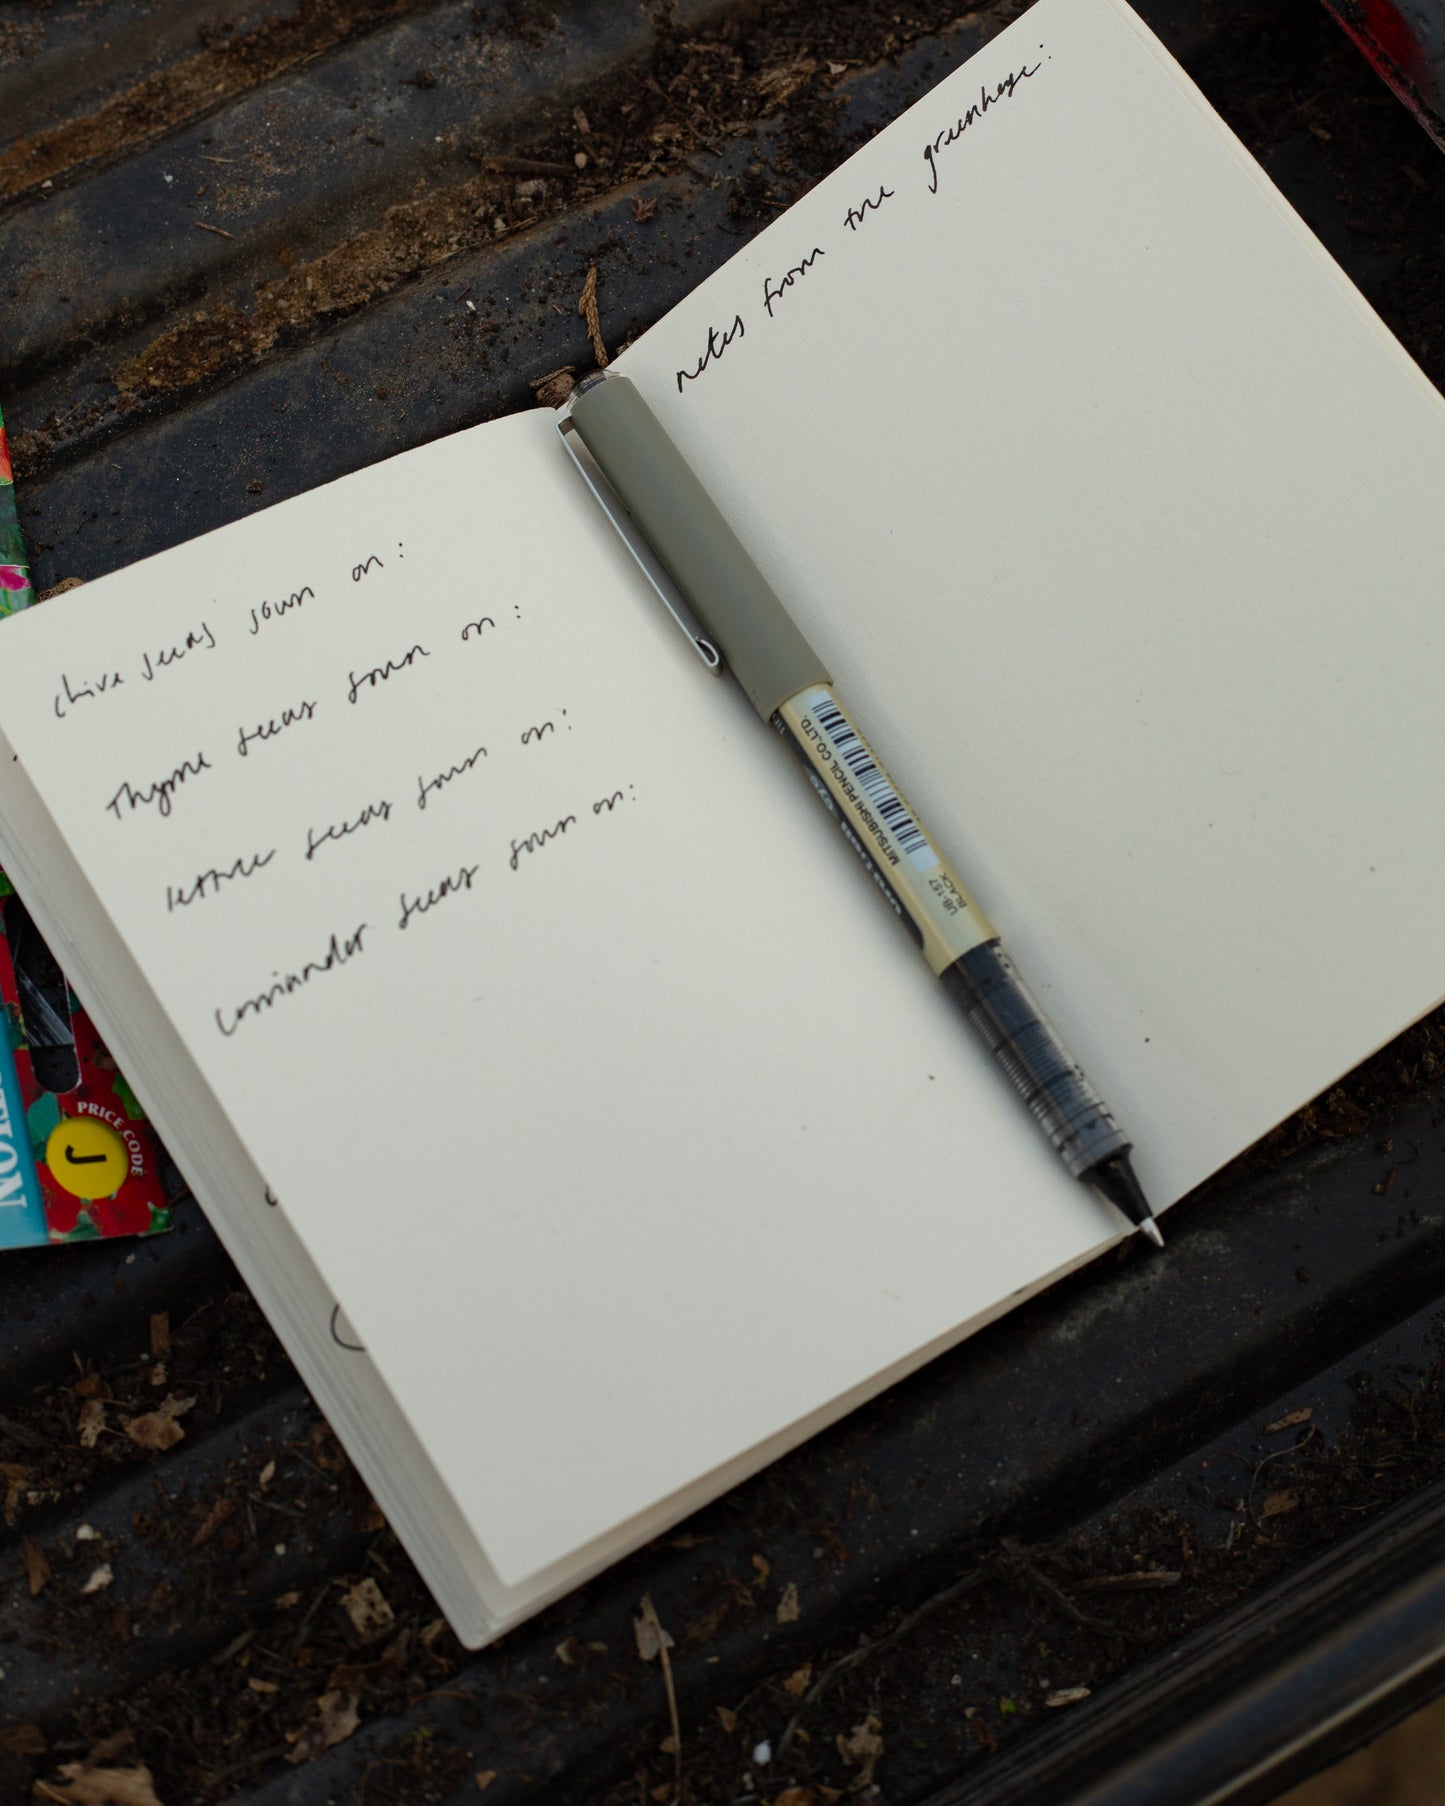 chive seeds sown on:
Thyme seeds sown on:
lettuce seeds sown on:
Corriander seeds sown on:
notes from the greenhouse:
MITSUBISHI PENCIL CO.,LTD.
uni-ball eye
UB-157
BLACK
PRICE CODE
J